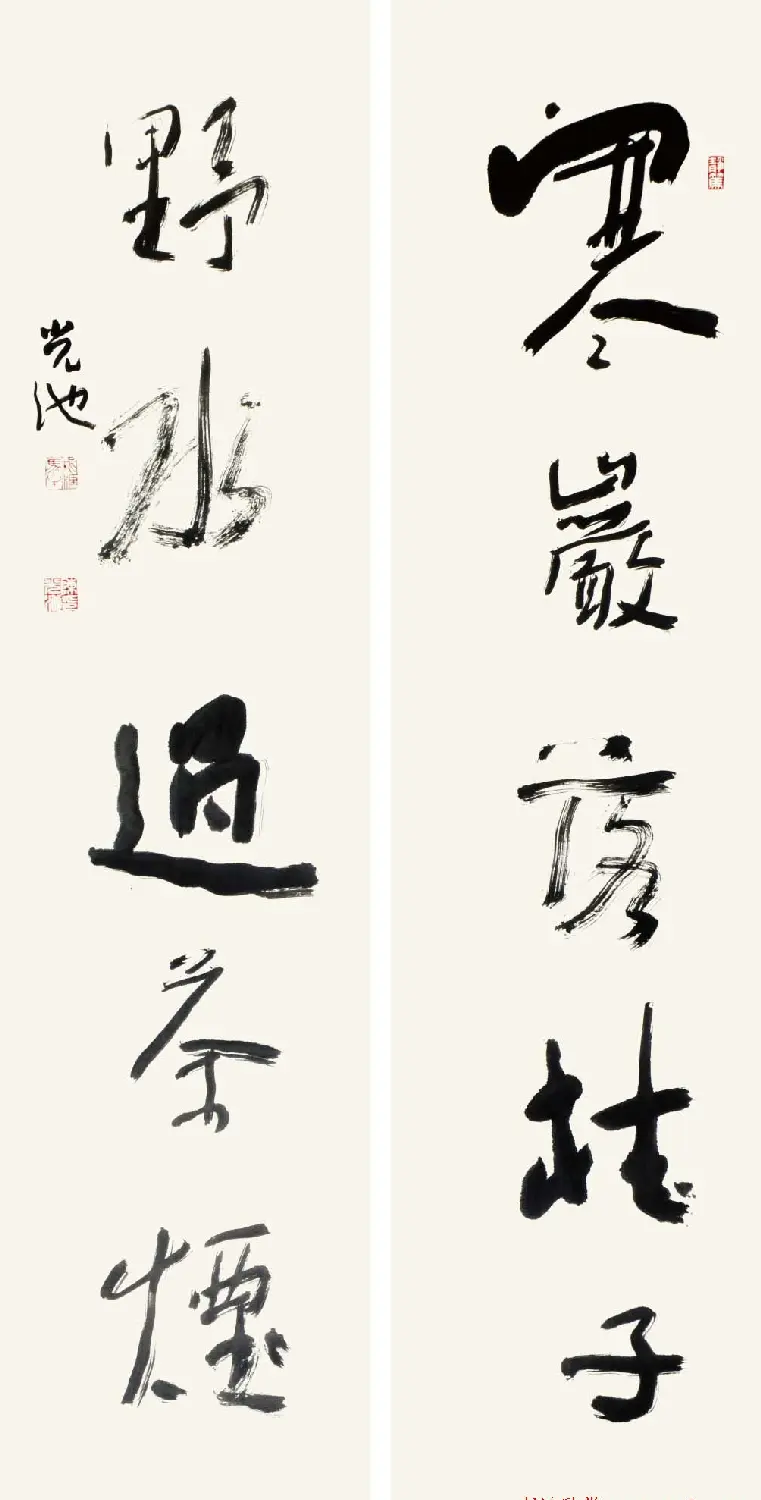 寒巖落桂子
野水過茶煙
光池